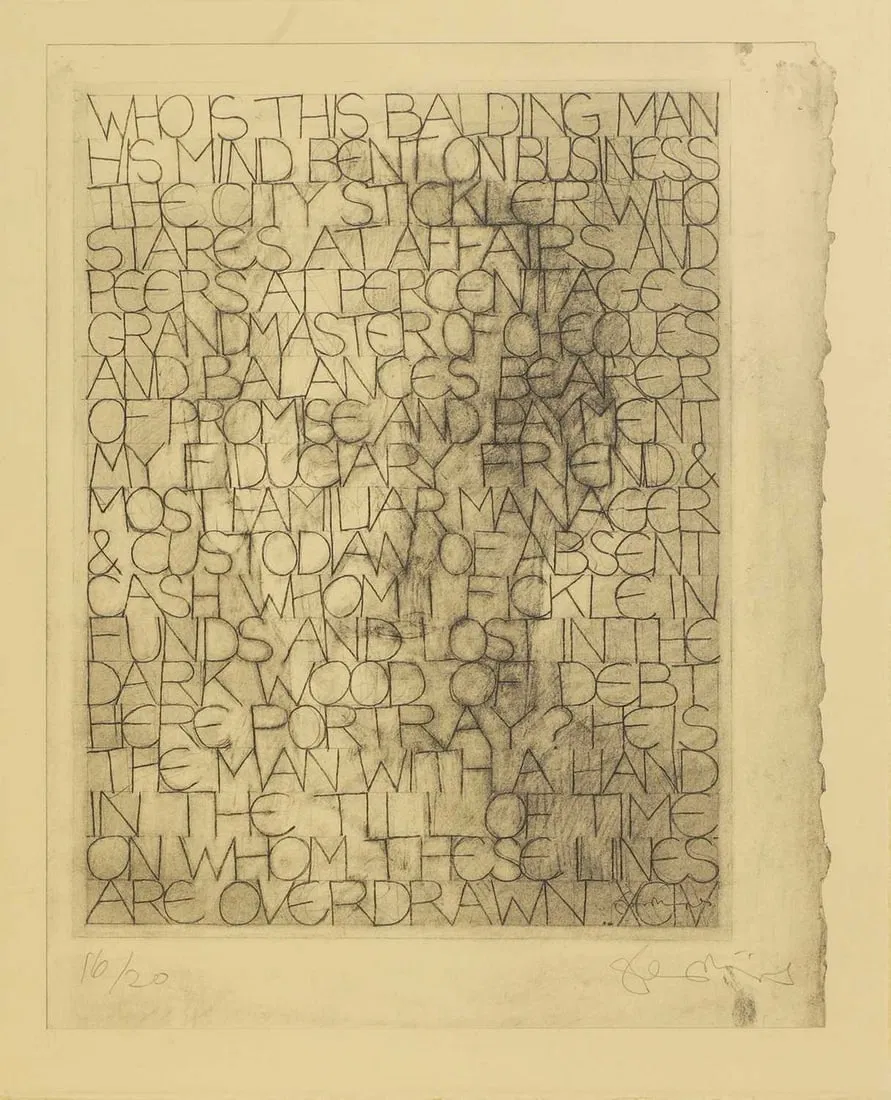 WHO IS THIS BALDING MAN
HIS MIND BENT ON BUSINESS
THE CITY STICKLER WHO
STARES AT AFFAIRS AND
PEERS AT PERCENTAGES
GRANDMASTER OF CHEQUES
AND BALANCES BEARER
OF PROMISE AND PAYMENT
MY FIDUCIARY FRIEND &
MOST FAMILIAR MANAGER
& CUSTODIAN OF ABSENT
CASH WHOM I FICKLE IN
FUNDS AND LOST IN THE
DARK WOOD OF DEBT
HERE PORTRAY? HE IS
THE MAN WITH A HAND
IN THE TILL OF TIME
ON WHOM THESE LINES
ARE OVERDRAWN
16/20